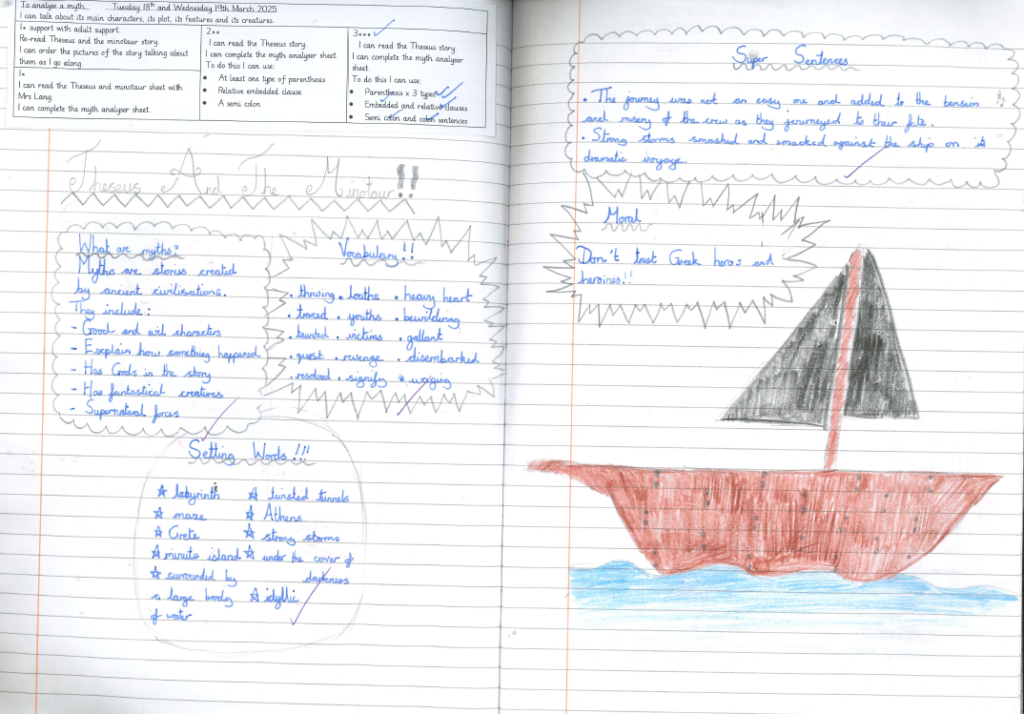 To analyse a myth. Tuesday 18th and Wednesday 19th March 2025
I can talk about its main characters, its plot, its features and its creatures.
1* support with adult support.
Re-read Theseus and the minotaur story.
I can order the pictures of the story talking about
them as I go along.
1*
I can read the Theseus and minotaur sheet with
Mrs Lang.
I can complete the myth analyser sheet.
2**
I can read the Theseus story.
I can complete the myth analyser sheet.
To do this I can use:
• At least one type of parenthesis
• Relative embedded clause
• A semi colon
3***
I can read the Theseus story.
I can complete the myth analyser
sheet.
To do this I can use:
• Parenthesis x 3 types
• Embedded and relative clauses
• Semi colon and colon sentences
Theseus And The Minotaur!!
What are myths?
Myths are stories created
by ancient civilisations.
They include:
- Good and evil characters
- Explain how something happened
- Has Gods in the story
- Has fantastical creatures
- Supernatural forces
Vocabulary!!
• thriving • loathe • heavy heart
• traced • youths • bewildering
• taunted • victims • gallant
• quest • revenge • disembarked
• resolved • signify
Setting Words!!!
☆ labyrinth ☆ twisted tunnels
☆ maze ☆ Athens
☆ Crete ☆ strong storms
☆ minute island ☆ under the cover of
☆ surrounded by darkness
a large body ☆ idyllic
of water
Super Sentences
• The journey was not an easy one and added to the tension
and misery of the crew as they journeyed to their fate.
• Strong storms smashed and smacked against the ship on its
dramatic voyage.
Moral
Don't trust Greek heros and
heroines!!